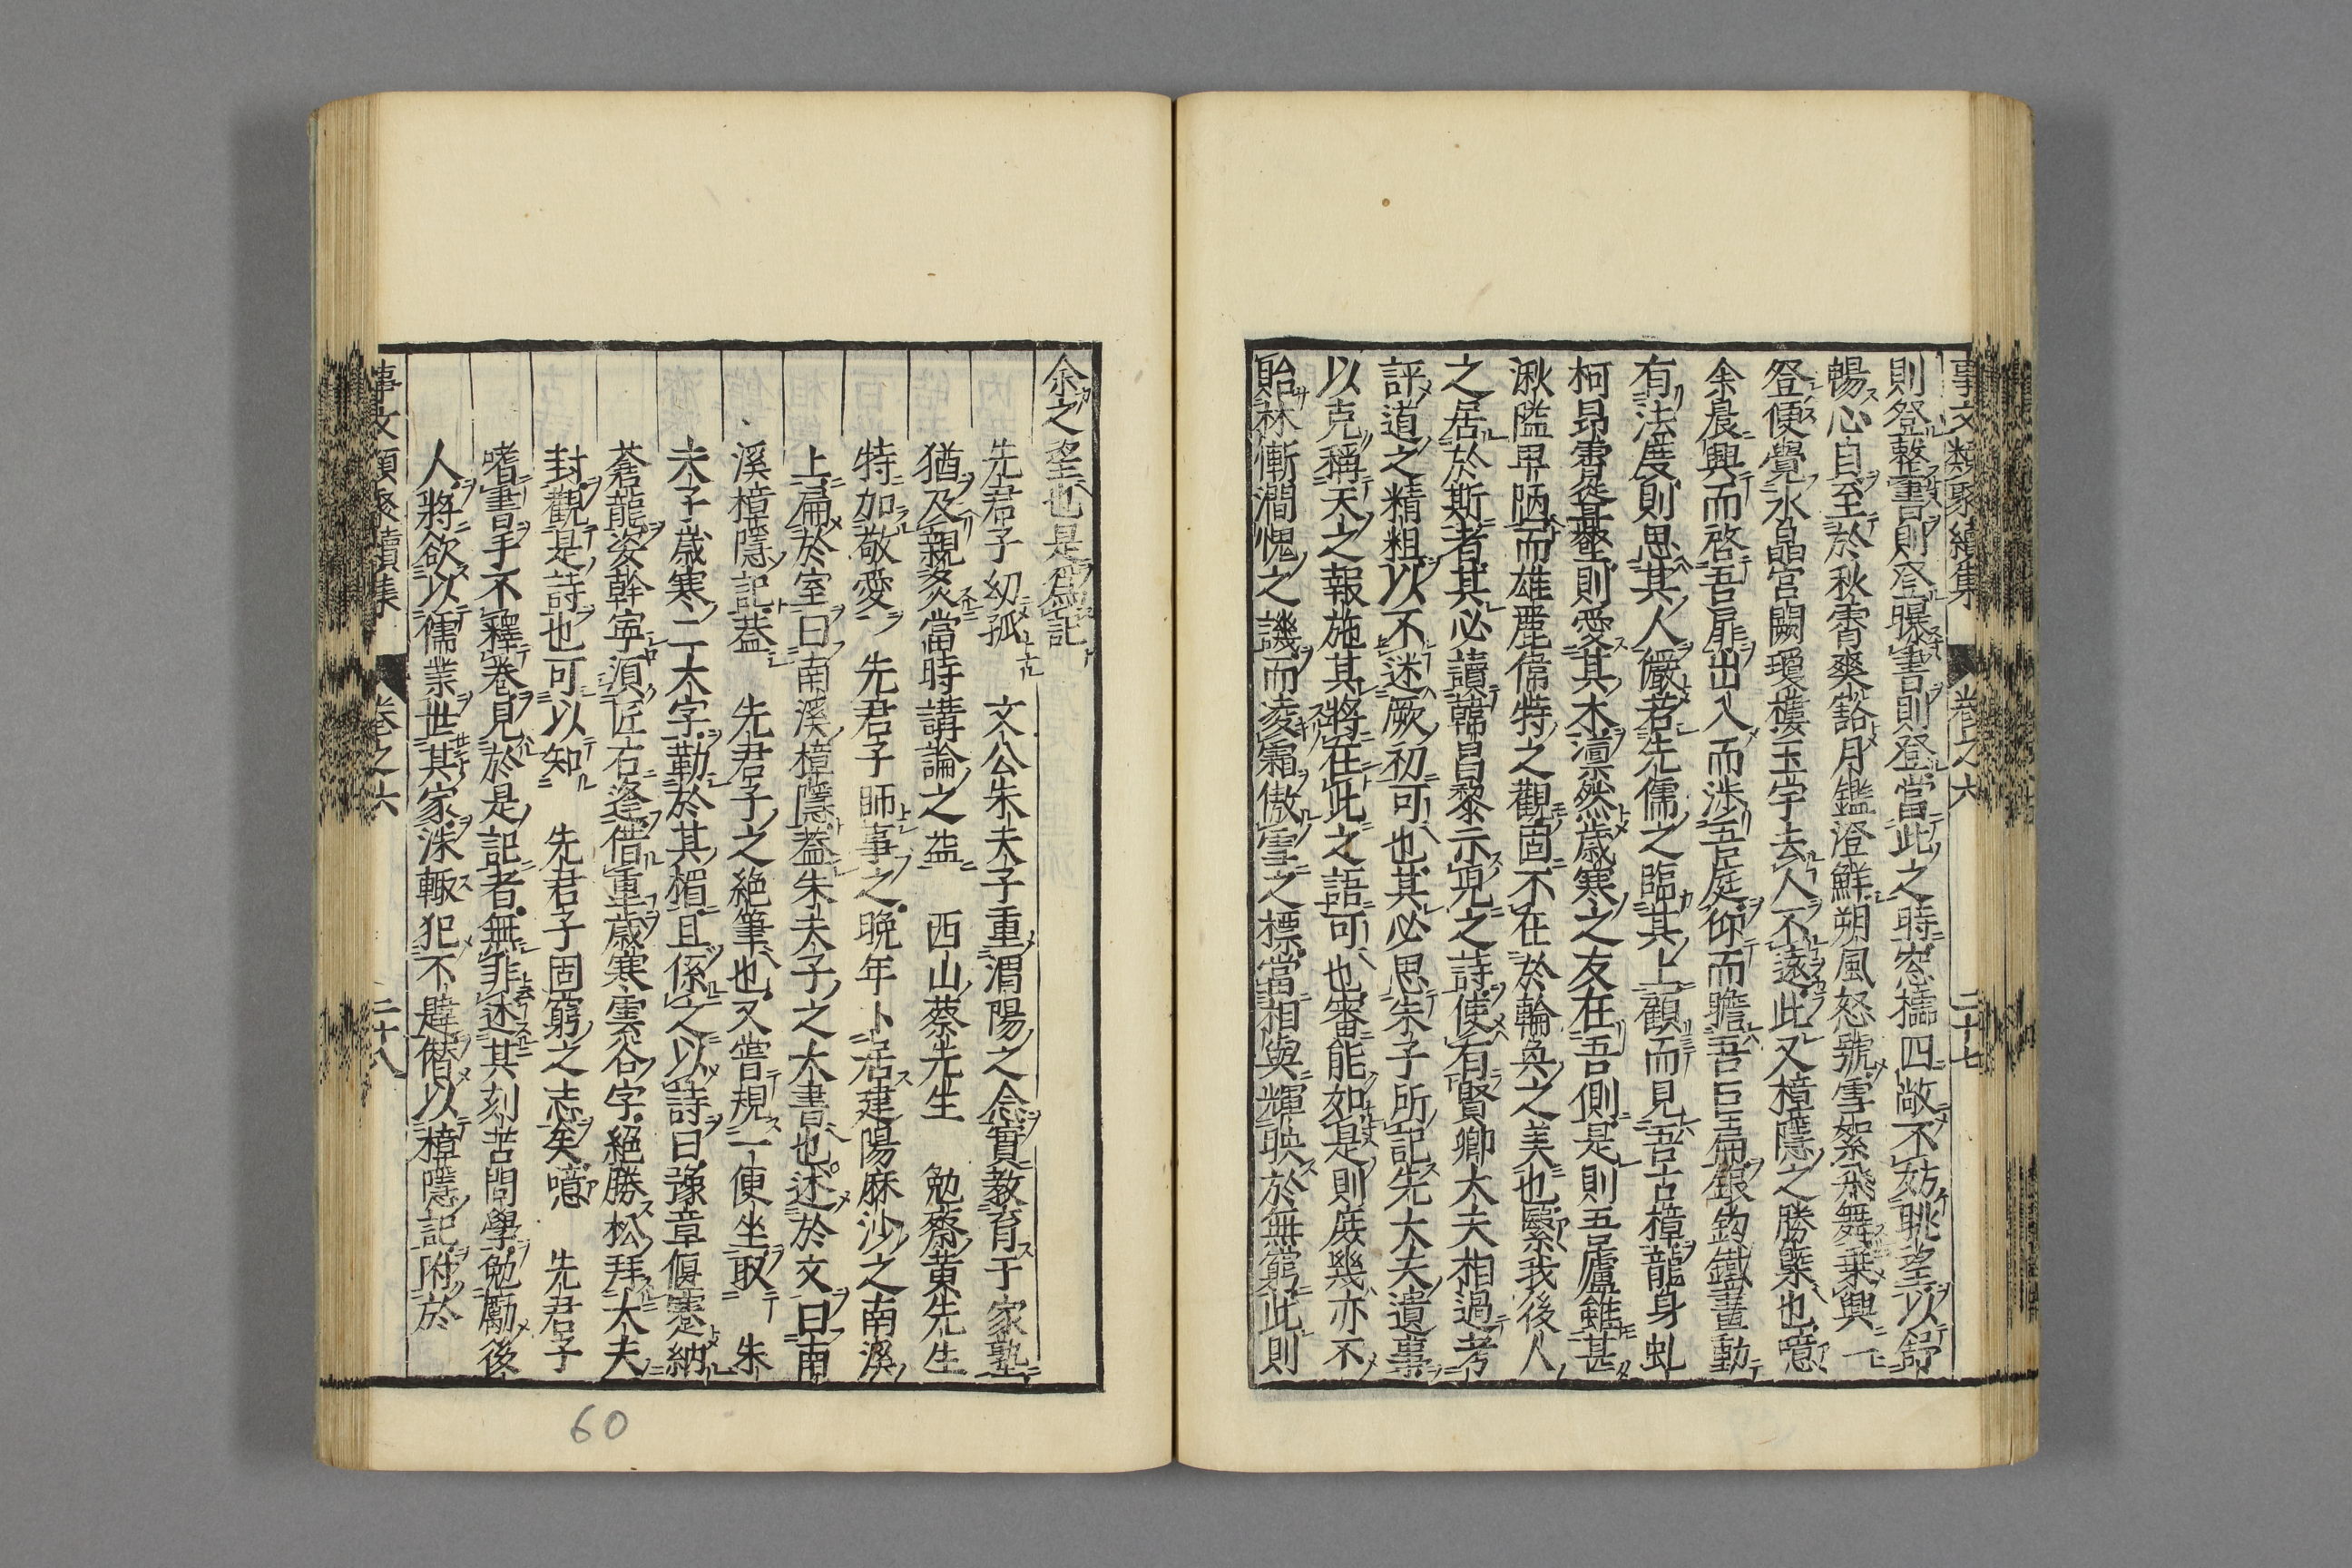 事文類聚續集 卷之六 二十七
則登整書則登曝書則登當此之時窓櫺四敞不妨眺望以舒
暢心自至於秋霄爽豁月鑑澄鮮朔風怒號雪絮飛舞乗興一
登便覺水晶宮闕瓊樓玉宇去人不遠此又樟隱之勝槩也噫
余晨興而啓吾扉出入而渉吾庭仰而瞻吾巨扁銀鈎鐵畫動
有法度則思其人儼若先儒之臨其上顧而見吾古樟龍身虬
柯昂霄聳壑則愛其木凛然歳寒之友在吾側是則吾廬雖甚
湫隘卑陋而雄麗偉特之觀固不在於輪奐之美也緊我後人
之居於斯者其必讀韓昌黎示兒之詩使有賢卿大夫相過考
評道之精粗以不迷厥初可也其必思朱子所記先大夫遺事
以克稱天之報施其將在此之語可也審能如是則庶幾亦不
貽林慚澗愧之譏而凌霜傲雪之標當相與輝映於無窮此則
余之望也是爲記
先君子幼孤 文公朱夫子重渭陽之念實教育于家塾
猶及親炙當時講論之益 西山蔡先生 勉齋黄先生
特加敬愛 先君子師事之晩年卜居建陽麻沙之南溪
上扁於室曰南溪樟隱葢朱夫子之大書也述於文曰南
溪樟隱記葢 先君子之絶筆也又嘗規一便坐取 朱
夫子歳寒二大字勒於其楣且係之以詩曰豫章偃蹇納
蒼龍姿幹寧須匠石逢借重歳寒雲谷字絶勝松拜大夫
封觀是詩也可以知 先君子固窮之志矣噫 先君子
嗜書手不釋卷見於是記者無非述其刻苦問學勉勵後
人將欲以儒業世其家洙輙犯不韙僣以樟隱記附於
事文類聚續集 卷之六 二十八
60